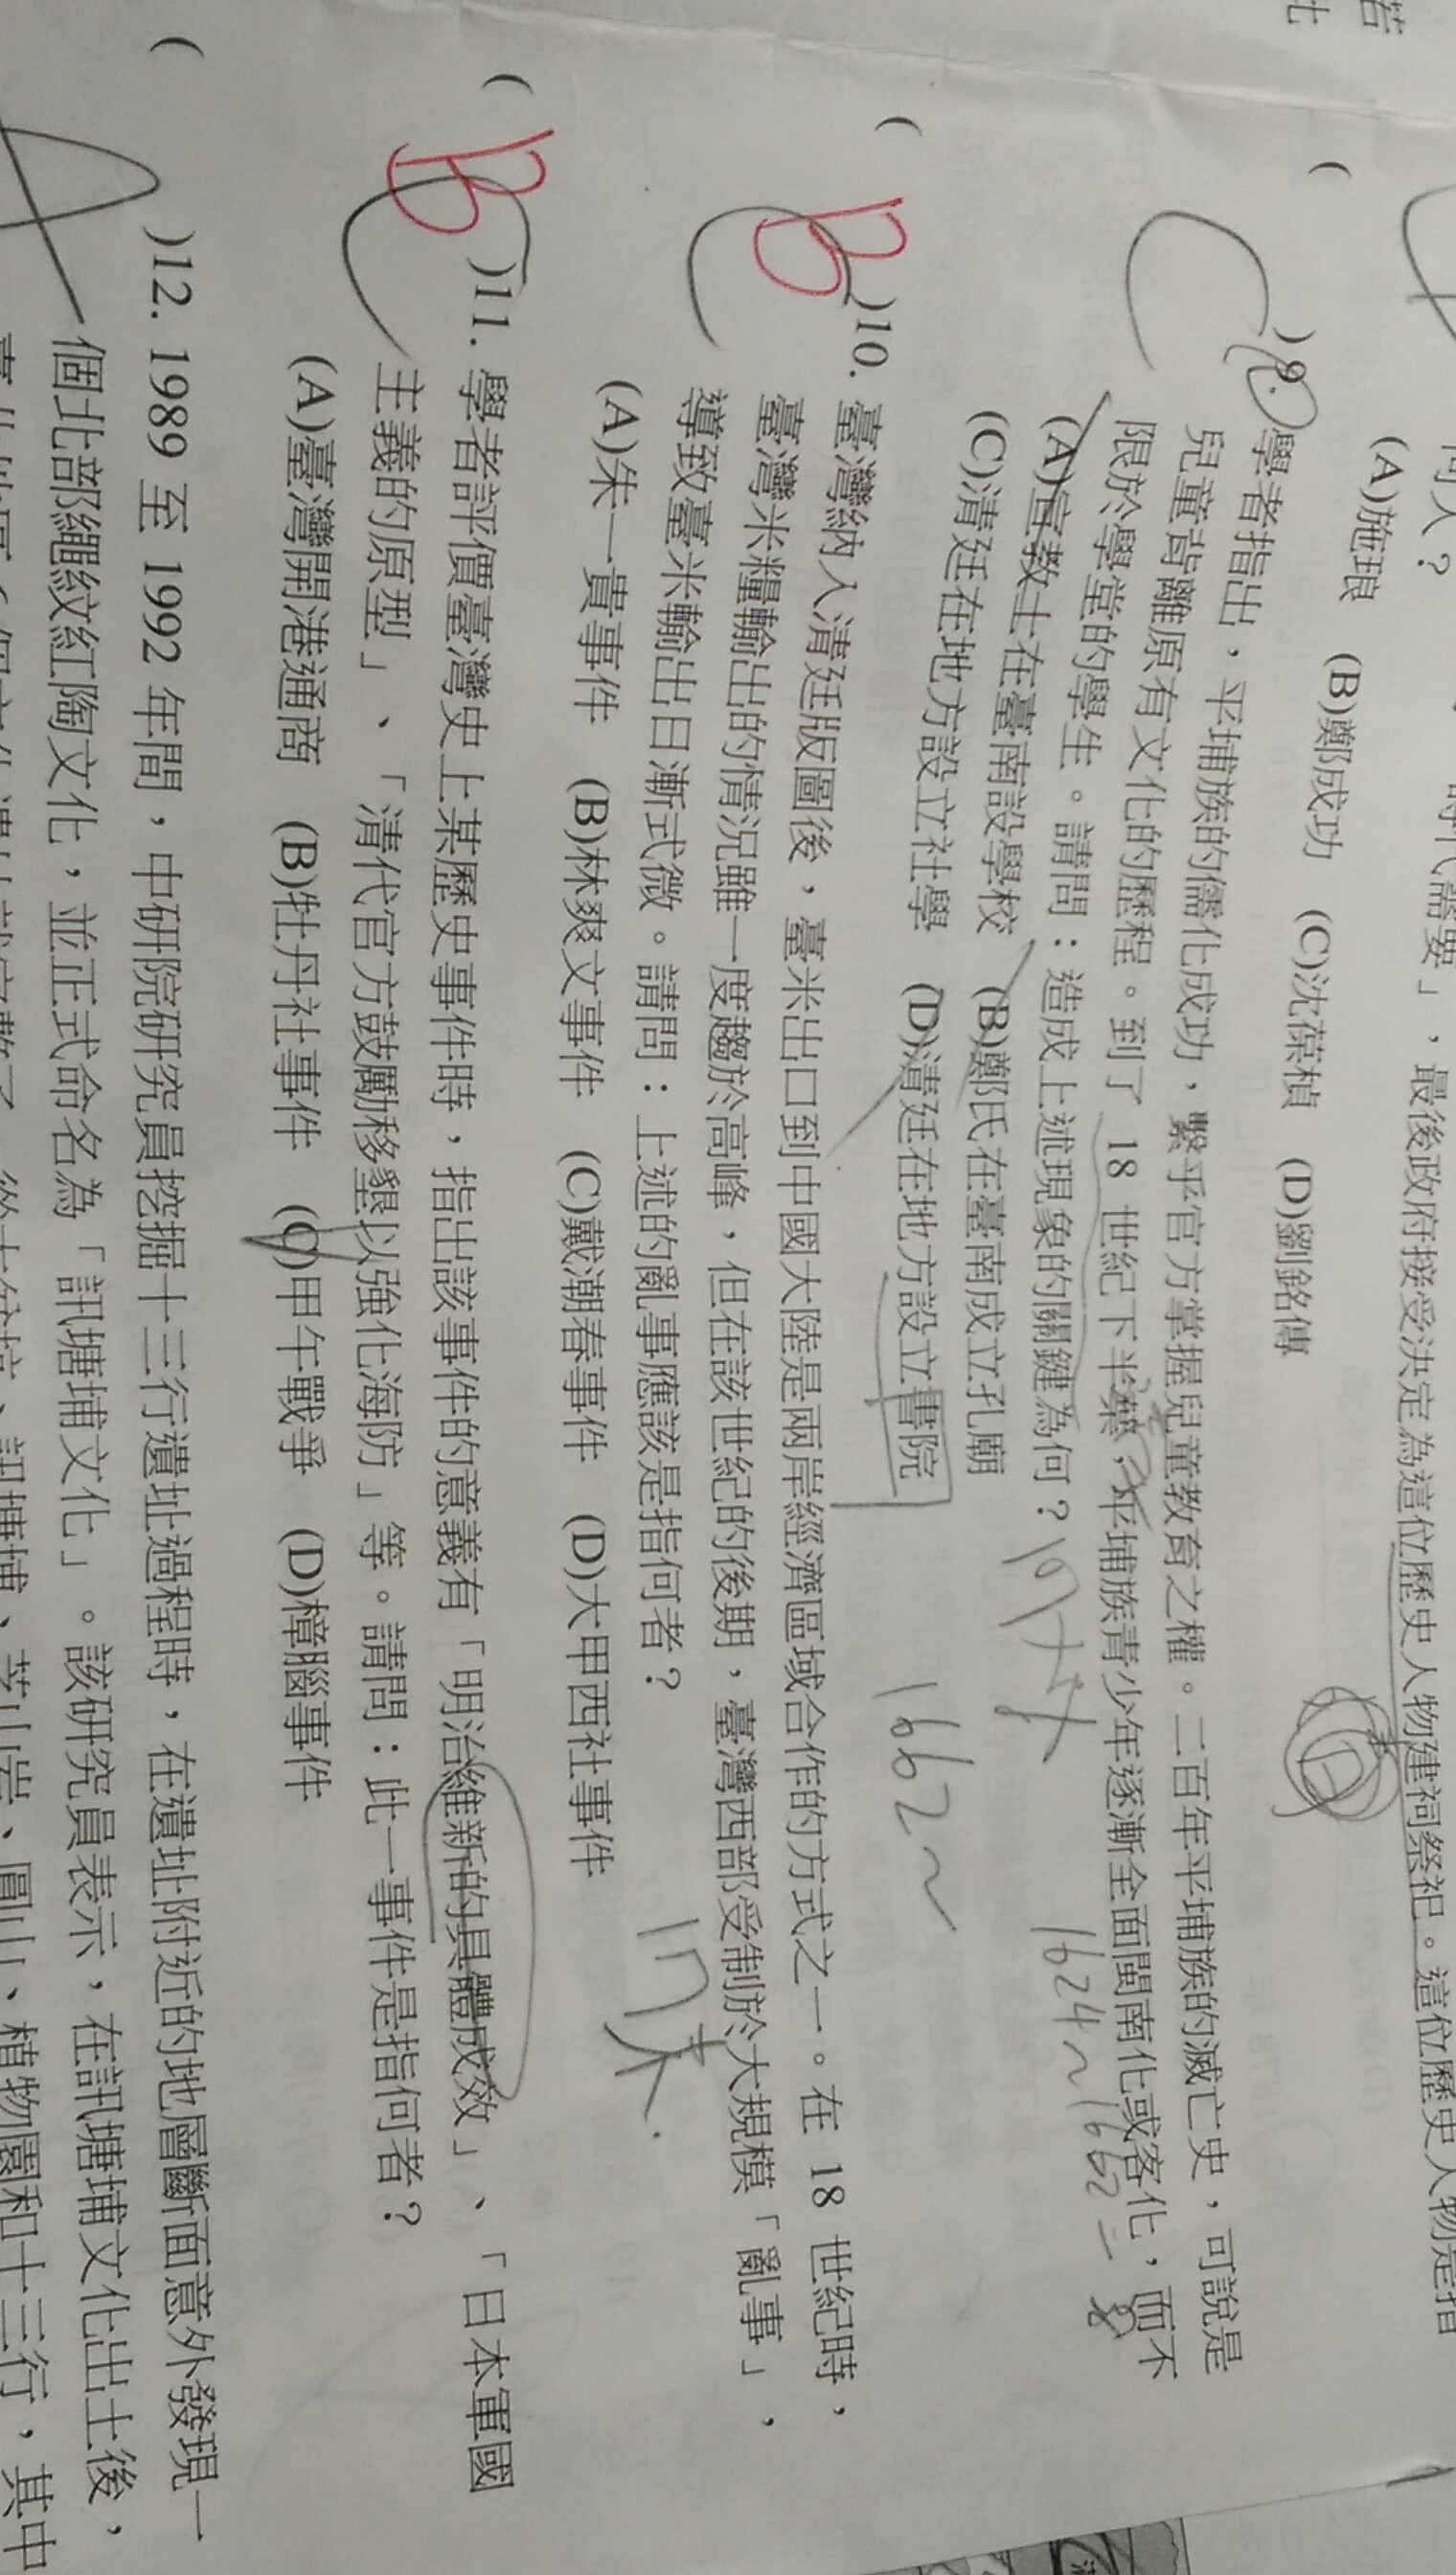 若
比
時代需要」，最後政府接受決定為這位歷史人物建祠祭祀。這位歷史人物是指
何人？
(A)施琅 (B)鄭成功 (C)沈葆楨 (D)劉銘傳
( C )9. 學者指出，平埔族的儒化成功，繫乎官方掌握兒童教育之權。二百年平埔族的滅亡史，可說是
兒童背離原有文化的歷程。到了 18 世紀下半葉，平埔族青少年逐漸全面閩南化或客化，而不
限於學堂的學生。請問：造成上述現象的關鍵為何？
(A)宣教士在臺南設學校 (B)鄭氏在臺南成立孔廟
(C)清廷在地方設立社學 (D)清廷在地方設立書院
1624~1662
1662~
( C B )10. 臺灣納入清廷版圖後，臺米出口到中國大陸是兩岸經濟區域合作的方式之一。在 18 世紀時，
臺灣米糧輸出的情況雖一度趨於高峰，但在該世紀的後期，臺灣西部受制於大規模「亂事」，
導致臺米輸出日漸式微。請問：上述的亂事應該是指何者？
(A)朱一貴事件 (B)林爽文事件 (C)戴潮春事件 (D)大甲西社事件
17末
( C B )11. 學者評價臺灣史上某歷史事件時，指出該事件的意義有「明治維新的具體成效」、「日本軍國
主義的原型」、「清代官方鼓勵移墾以強化海防」等。請問：此一事件是指何者？
(A)臺灣開港通商 (B)牡丹社事件 (C)甲午戰爭 (D)樟腦事件
( A )12. 1989 至 1992 年間，中研院研究員挖掘十三行遺址過程時，在遺址附近的地層斷面意外發現一
個北部繩紋紅陶文化，並正式命名為「訊塘埔文化」。該研究員表示，在訊塘埔文化出土後，
訊塘埔、芝山岩、圓山、植物園和十三行，其中